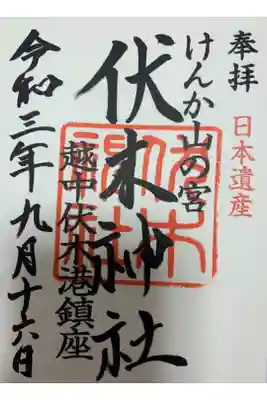 奉拝
日本遺産
けんか山の宮
伏木神社
越中伏木港鎮座
令和三年九月十六日